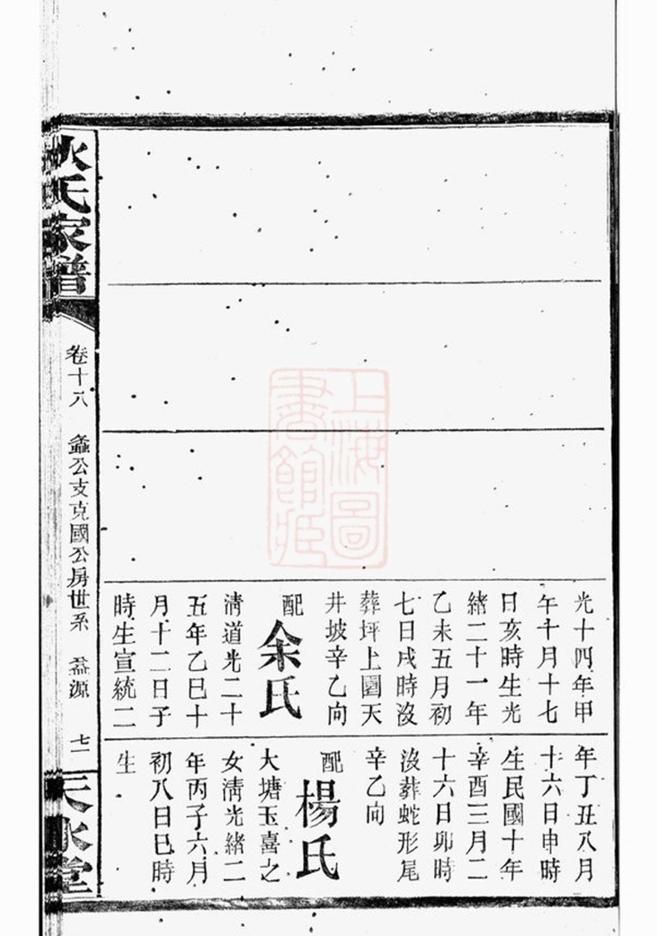 光十四年甲
午十月十七
日亥時生光
緒二十一年
乙未五月初
七日戌時沒
葬坪上園天
井坡辛乙向
配余氏
清道光二十
五年乙巳十
月十二日子
時生宣統二
年丁丑八月
十六日申時
生民國十年
辛酉三月二
十六日卯時
沒葬蛇形尾
辛乙向
配楊氏
大塘玉喜之
女清光緒二
年丙子六月
初八日巳時
生
氏家譜
卷十八 公支克國公房世系 益源 七一
天水堂
上海圖
書館藏